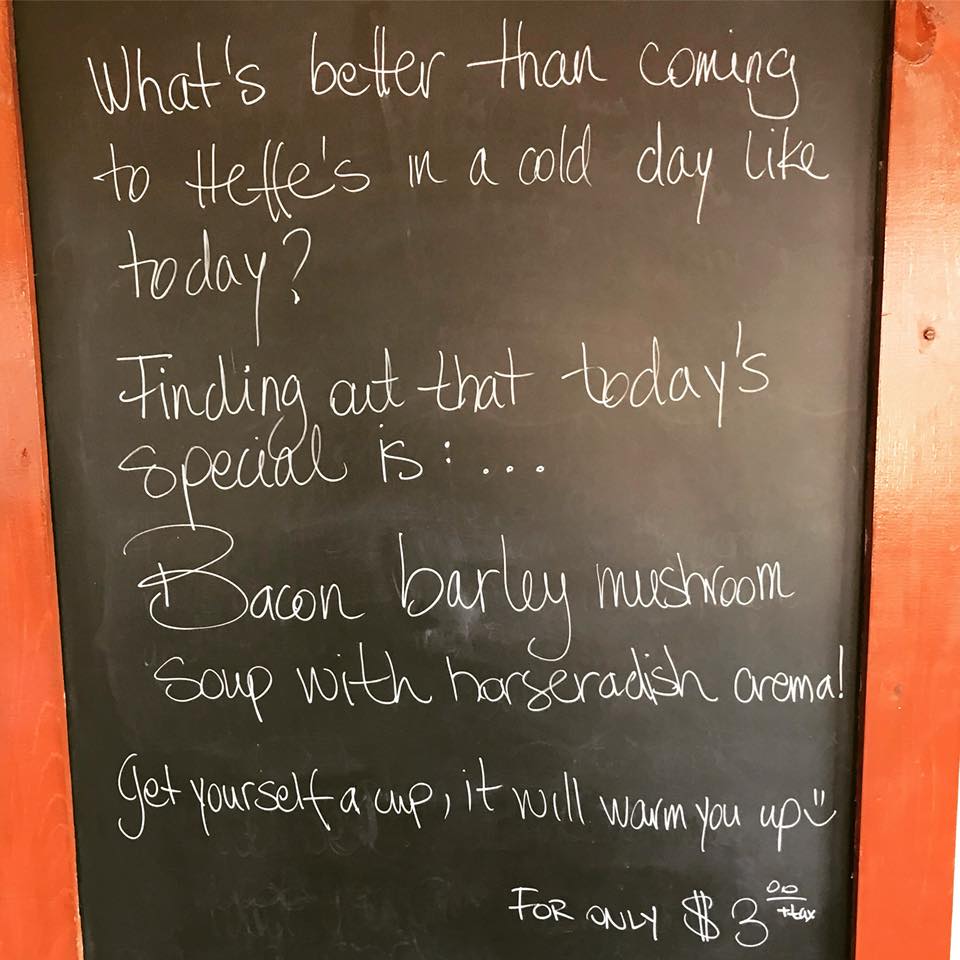 What's better than coming
to Heffe's in a cold day like
today?
Finding out that today's
special is: ...
Bacon barley mushroom
soup with horseradish crema!
Get yourself a cup, it will warm you up
FOR ONLY $3 00
+tax